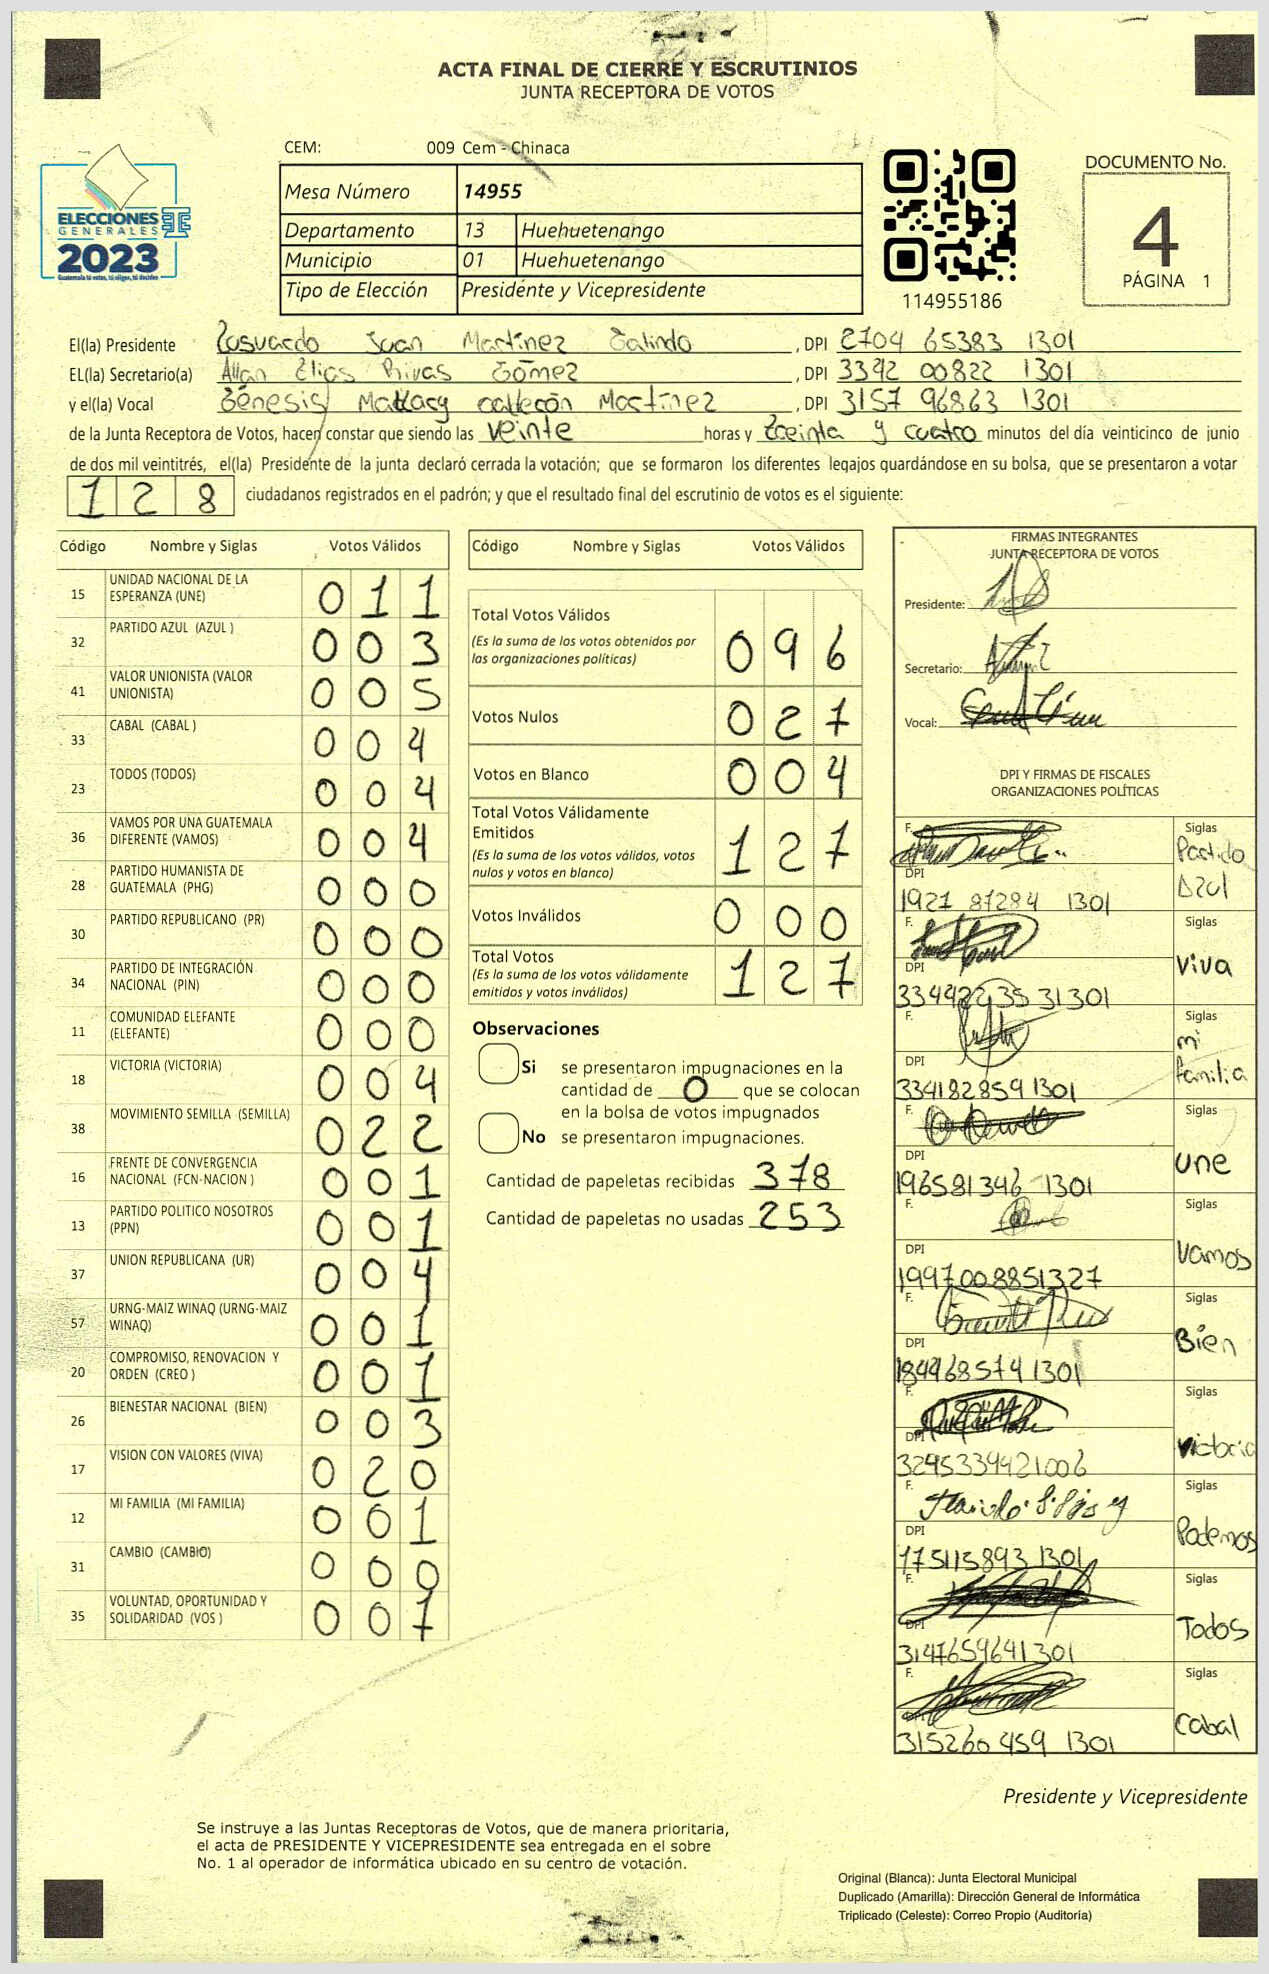 ACTA FINAL DE CIERRE Y ESCRUTINIOS
JUNTA RECEPTORA DE VOTOS
CEM: 009 Cem - Chinaca
ELECCIONES
GENERALES
2023
Guatemala tú votas, tú eliges, tú decides
Mesa Número 14955
Departamento 13 Huehuetenango
Municipio 01 Huehuetenango
Tipo de Elección Presidente y Vicepresidente
114955186
DOCUMENTO No.
4
PÁGINA 1
El(la) Presidente Juan Martínez Galindo, DPI 2704 65383 1301
EL(la) Secretario(a) Allan Elias Rivas Gómez, DPI 3392 00822 1301
y el(la) Vocal Génesis Martínez, DPI 3157 96863 1301
de la Junta Receptora de Votos, hacen constar que siendo las veinte horas y treinta y cuatro minutos del día veinticinco de junio
de dos mil veintitrés, el(la) Presidente de la junta declaró cerrada la votación; que se formaron los diferentes legajos guardándose en su bolsa, que se presentaron a votar
128 ciudadanos registrados en el padrón; y que el resultado final del escrutinio de votos es el siguiente:
Código Nombre y Siglas Votos Válidos
15 UNIDAD NACIONAL DE LA ESPERANZA (UNE) 011
32 PARTIDO AZUL (AZUL ) 003
41 VALOR UNIONISTA (VALOR UNIONISTA) 005
33 CABAL (CABAL ) 004
23 TODOS (TODOS) 004
36 VAMOS POR UNA GUATEMALA DIFERENTE (VAMOS) 004
28 PARTIDO HUMANISTA DE GUATEMALA (PHG) 000
30 PARTIDO REPUBLICANO (PR) 000
34 PARTIDO DE INTEGRACIÓN NACIONAL (PIN) 000
11 COMUNIDAD ELEFANTE (ELEFANTE) 000
18 VICTORIA (VICTORIA) 004
38 MOVIMIENTO SEMILLA (SEMILLA) 022
16 FRENTE DE CONVERGENCIA NACIONAL (FCN-NACION ) 001
13 PARTIDO POLITICO NOSOTROS (PPN) 001
37 UNION REPUBLICANA (UR) 004
57 URNG-MAIZ WINAQ (URNG-MAIZ WINAQ) 001
20 COMPROMISO, RENOVACION Y ORDEN (CREO ) 001
26 BIENESTAR NACIONAL (BIEN) 003
17 VISION CON VALORES (VIVA) 020
12 MI FAMILIA (MI FAMILIA) 001
31 CAMBIO (CAMBIO) 000
35 VOLUNTAD, OPORTUNIDAD Y SOLIDARIDAD (VOS ) 007
Código Nombre y Siglas Votos Válidos
Total Votos Válidos 096
(Es la suma de los votos obtenidos por
las organizaciones políticas)
Votos Nulos 027
Votos en Blanco 004
Total Votos Válidamente
Emitidos 127
(Es la suma de los votos válidos, votos
nulos y votos en blanco)
Votos Inválidos 000
Total Votos 127
(Es la suma de los votos válidamente
emitidos y votos inválidos)
Observaciones
Si se presentaron impugnaciones en la
cantidad de 0 que se colocan
en la bolsa de votos impugnados
No se presentaron impugnaciones.
Cantidad de papeletas recibidas 378
Cantidad de papeletas no usadas 253
FIRMAS INTEGRANTES
JUNTA RECEPTORA DE VOTOS
Presidente:
Secretario:
Vocal:
DPI Y FIRMAS DE FISCALES
ORGANIZACIONES POLÍTICAS
F. Siglas
Partido Azul
DPI
1921 87284 1301
F. Siglas
Viva
DPI
334922 35 31301
F. Siglas
mi familia
DPI
334182859 1301
F. Siglas
une
DPI
196581346 1301
F. Siglas
Vamos
DPI
1997008851327
F. Siglas
Bien
DPI
184968574 1301
F. Siglas
Victoria
DPI
3295339421006
F. Siglas
Podemos
DPI
175115893 1301
F. Siglas
Todos
DPI
3147659641301
F. Siglas
Cabal
315260 459 1301
Presidente y Vicepresidente
Se instruye a las Juntas Receptoras de Votos, que de manera prioritaria,
el acta de PRESIDENTE Y VICEPRESIDENTE sea entregada en el sobre
No. 1 al operador de informática ubicado en su centro de votación.
Original (Blanca): Junta Electoral Municipal
Duplicado (Amarilla): Dirección General de Informática
Triplicado (Celeste): Correo Propio (Auditoría)